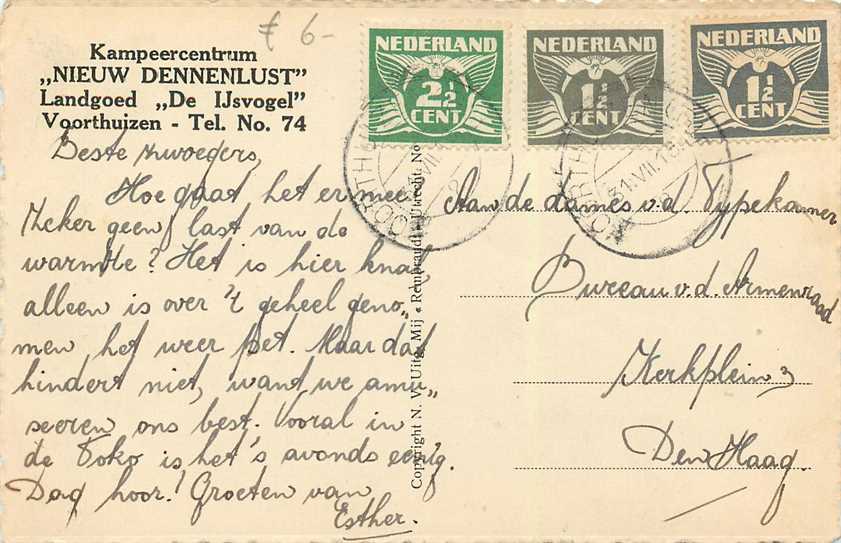 £ 6-
Kampeercentrum
„NIEUW DENNENLUST”
Landgoed „De IJsvogel”
Voorthuizen - Tel. No. 74
NEDERLAND
2½
CENT
NEDERLAND
1½
CENT
NEDERLAND
1½
CENT
31.VII.
Beste zwoegers,
Hoe gaat het ermee
Zeker geen last van de
warmte? Het is hier knal,
alleen is over 't geheel geno„
men het weer pet. Maar dat
hindert niet, want we amu„
seeren ons best. Vooral in
de Toko is het 's avonds eenig.
Dag hoor! Groeten van
Esther.
Copyright N. V. Uitg. Mij „Rembrandt” Utrecht. No
Aan de dames v.d. Typekamer
Bureau v.d. Armenraad
Kerkplein 3
Den Haag.